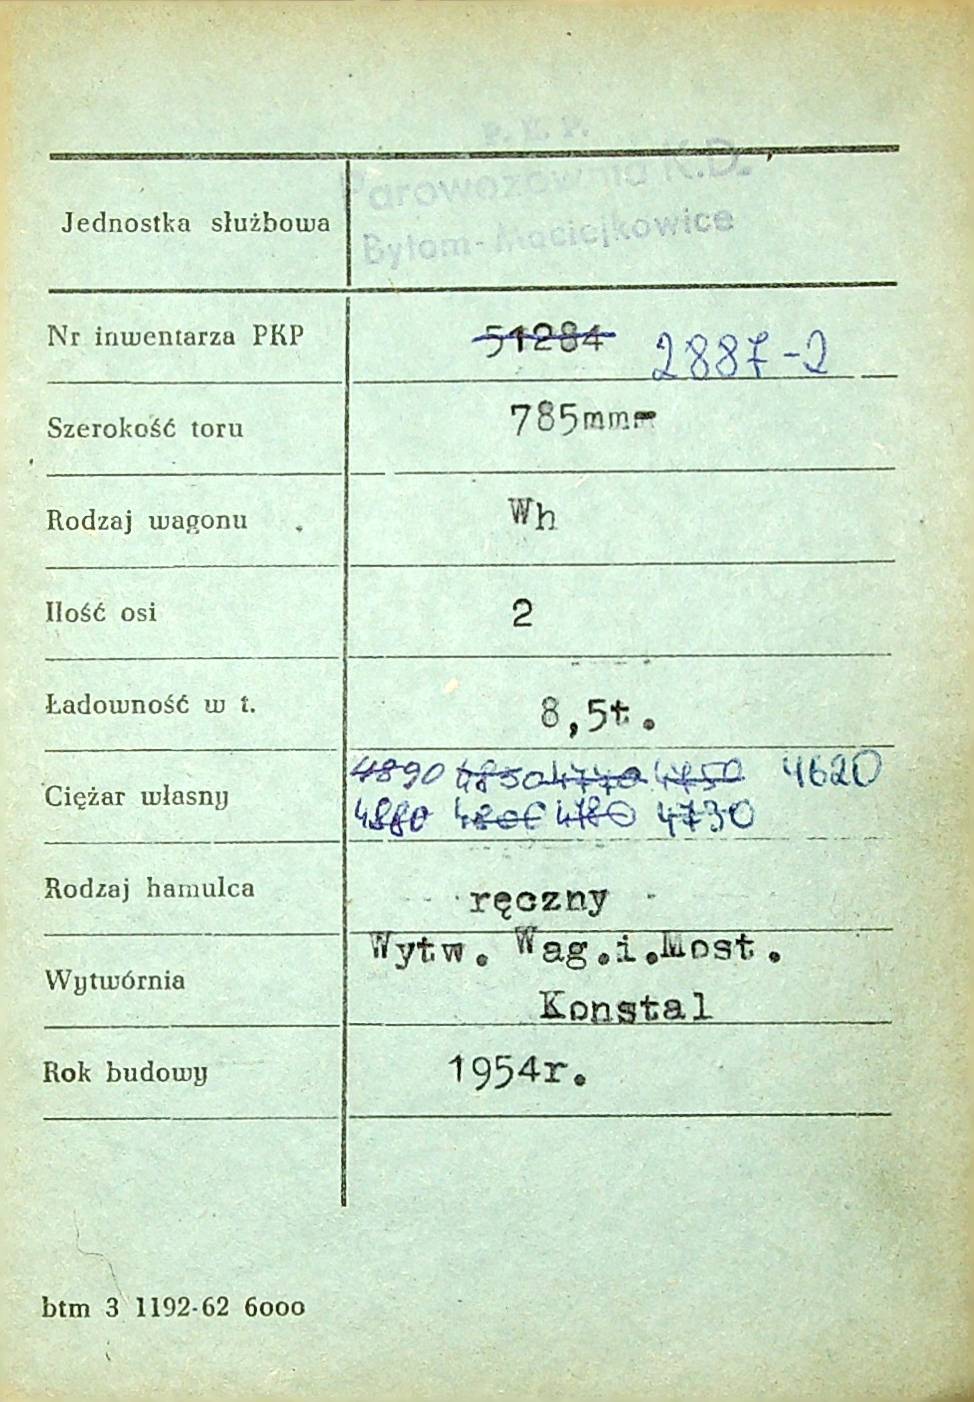 P. K. P.
Parowozownia K.D.
Jednostka służbowa
Bytom-Maciejkowice
Nr inwentarza PKP 51284 2887-2
Szerokość toru 785mm-
Rodzaj wagonu Wh
Ilość osi 2
Ładowność w t. 8,5t.
4890 4850 4770 4750 4620
Ciężar własny
4880 4800 4780 4730
Rodzaj hamulca ręczny
Wytw. Wag.i.Most.
Wytwórnia
Konstal
Rok budowy 1954r.
btm 3 1192-62 6000